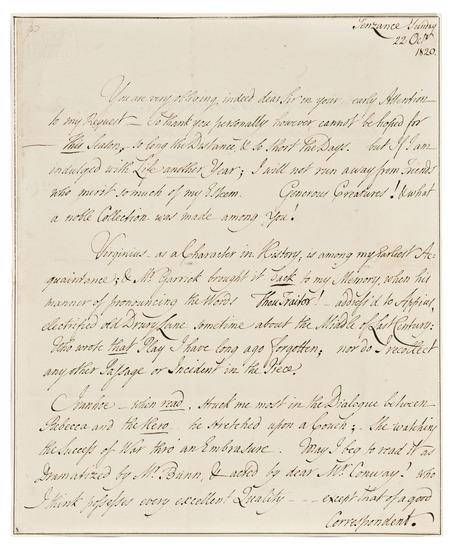 Penzance Sunday
22 Octr
1820.
You are very obliging indeed dear Sir on your early Attention
to my Request — to thank you personally however cannot be hoped for
— This Season, so long the Distance, & so short the Days. but If I am
indulged with Life another Year; I will not run away from Friends
who merit so much of my Esteem. Generous Creatures! & what
a noble Collection was made among You!
Virginius – as a Character in History, is among my Earliest Ac-
quaintance; & Mr Garrick brought it back to my Memory, when his
manner of pronouncing the Words Thou Traitor! – address'd to Appius,
electrified old Drury Lane sometime about the Middle of Last Century:
Who wrote that Play I have long ago forgotten; nor do I recollect
any other Passage or Incident in the Piece.
Ivanhoe – when read, struck me most in the Dialogue between
Rebecca and the Hero – he stretched upon a Couch; She watching
the Success of War thro' an Embrasure. May I beg to read it as
Dramatized by Mr Bunn, & acted by dear Mr Conway? who
I think possesses every excellent Quality – – – except that of a good
Correspondent.